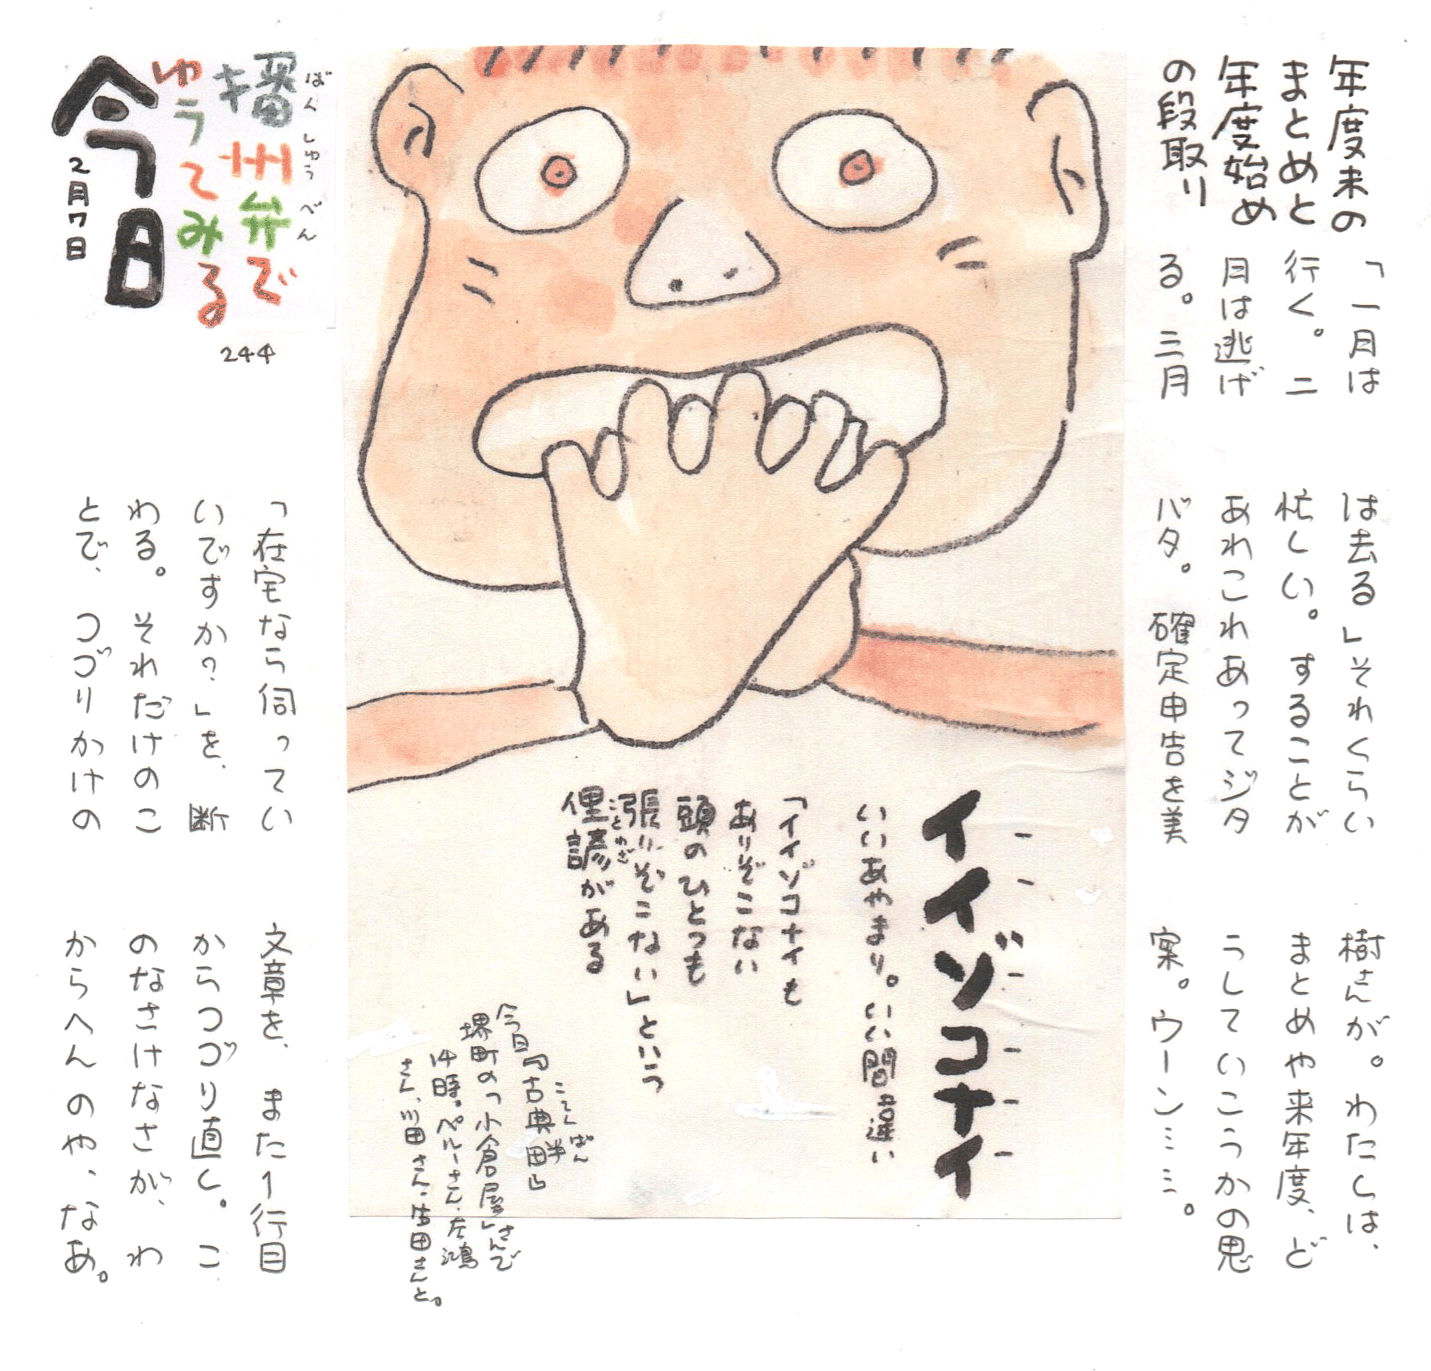 年度末の
まとめと
年度始め
の段取り
「一月は
行く。二
月は逃げ
る。三月
は去る」それくらい
忙しい。することが
あれこれあってジタ
バタ。確定申告を美
樹さんが。わたしは、
まとめや来年度、ど
うしていこうかの思
案。ウーン……。
イイゾコナイ
いいあやまり。いい間違い
「イイゾコナイも
ありぞこない
頭のひとつも
張りぞこない」という
俚諺がある
ことわざ
こてんぱん
今日『古典畔田』
堺町の「小倉屋」さんで
14時。ペルーさん、左鴻
さん、川田さん、吉田さんと。
ばんしゅうべん
播州弁で
ゆうてみる
今日
2月7日
244
「在宅なら伺ってい
いですか?」を、断
わる。それだけのこ
とで、つづりかけの
文章を、また1行目
からつづり直し。こ
のなさけなさが、わ
からへんのや、なあ。